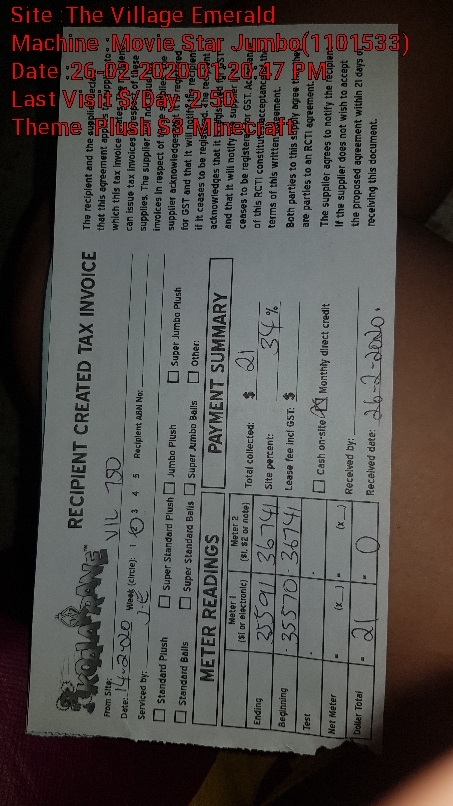 Site :The Village Emerald
Machine :Movie Star Jumbo(1101533)
Date :26-02-2020 01:20:47 PM
Last Visit $/Day :2.50
Theme :Plush $3: Minecraft
RECIPIENT CREATED TAX INVOICE
From Site: VIL 150
Date: 14-2-20 Week (circle): 1 2 3 4 5 Recipient ABN No:
Serviced by:
Standard Plush Super Standard Plush Jumbo Plush Super Jumbo Plush
Standard Balls Super Standard Balls Super Jumbo Balls Other:
METER READINGS
Meter 1 Meter 2
($1 or electronic) ($1, $2 or note)
Ending 35591 36741
Beginning 35570 36741
Test
Net Meter = (x ) = (x )
Dollar Total = 21 = 0
PAYMENT SUMMARY
Total collected: $ 21
Site percent: 34 %
Lease fee incl GST: $
Cash on-site Monthly direct credit
Received by:
Received date: 26-2-2020.
The recipient and the supplier
that this agreement
which this tax invoice
can issue tax invoices in respect of these
supplies. The supplier will not issue tax
invoices in respect of
supplier acknowledges
for GST and that it will notify the recipient
if it ceases to be registered. The recipient
acknowledges that it is registered for GST
and that it will notify the supplier
ceases to be registered for GST.
of this RCTI constitutes acceptance of the
terms of this written agreement.
Both parties to this supply agree that they
are parties to an RCTI agreement.
The supplier agrees to notify the recipient
if the supplier does not wish to accept
the proposed agreement within 21 days of
receiving this document.